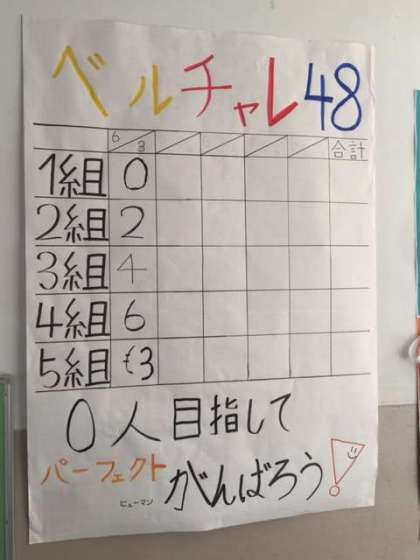 ベルチャレ48
6/3 合計
1組 0
2組 2
3組 4
4組 6
5組 3
0人目指して
パーフェクト
ヒューマン がんばろう!